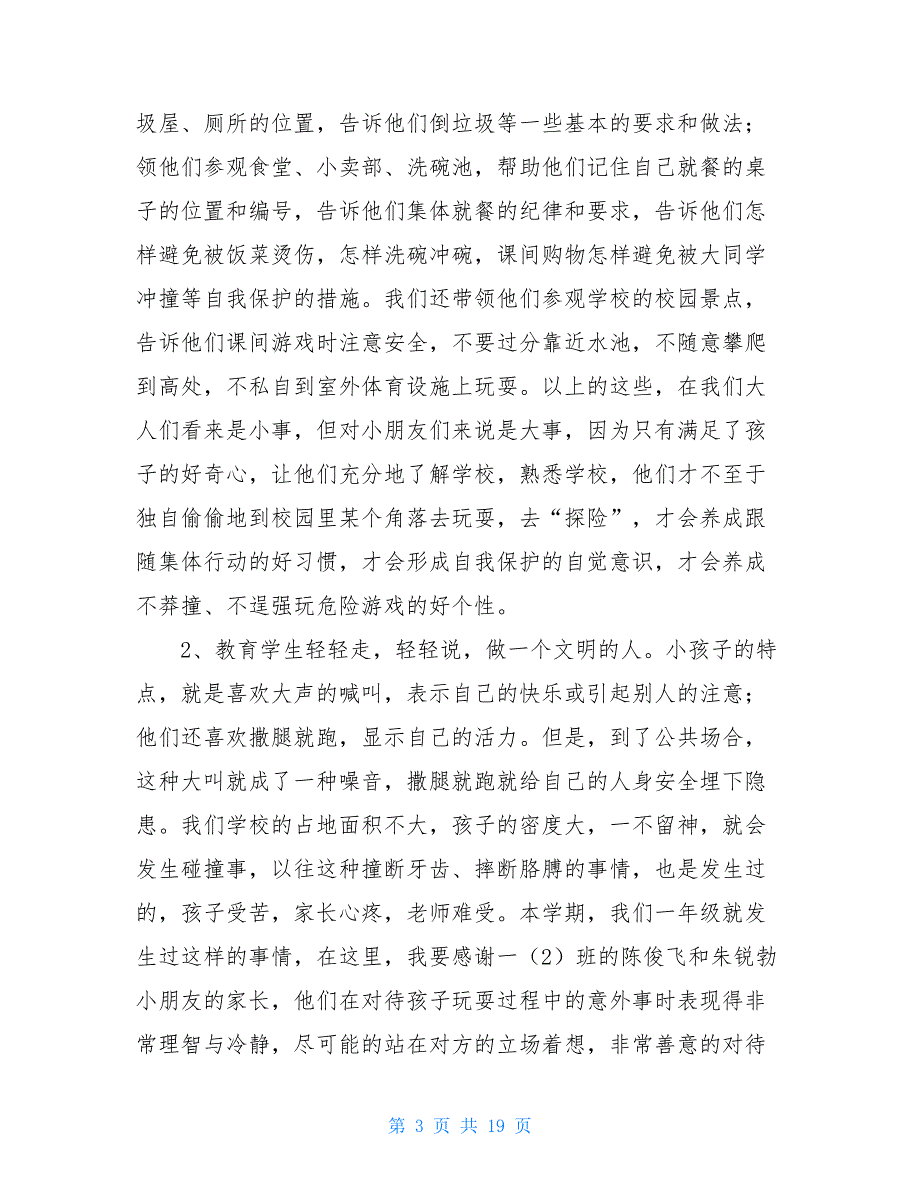 圾屋、厕所的位置，告诉他们倒垃圾等一些基本的要求和做法；
领他们参观食堂、小卖部、洗碗池，帮助他们记住自己就餐的桌
子的位置和编号，告诉他们集体就餐的纪律和要求，告诉他们怎
样避免被饭菜烫伤，怎样洗碗冲碗，课间购物怎样避免被大同学
冲撞等自我保护的措施。我们还带领他们参观学校的校园景点，
告诉他们课间游戏时注意安全，不要过分靠近水池，不随意攀爬
到高处，不私自到室外体育设施上玩耍。以上的这些，在我们大
人们看来是小事，但对小朋友们来说是大事，因为只有满足了孩
子的好奇心，让他们充分地了解学校，熟悉学校，他们才不至于
独自偷偷地到校园里某个角落去玩耍，去“探险”，才会养成跟
随集体行动的好习惯，才会形成自我保护的自觉意识，才会养成
不莽撞、不逞强玩危险游戏的好个性。
2、教育学生轻轻走，轻轻说，做一个文明的人。小孩子的特
点，就是喜欢大声的喊叫，表示自己的快乐或引起别人的注意；
他们还喜欢撒腿就跑，显示自己的活力。但是，到了公共场合，
这种大叫就成了一种噪音，撒腿就跑就给自己的人身安全埋下隐
患。我们学校的占地面积不大，孩子的密度大，一不留神，就会
发生碰撞事，以往这种撞断牙齿、摔断胳膊的事情，也是发生过
的，孩子受苦，家长心疼，老师难受。本学期，我们一年级就发
生过这样的事情，在这里，我要感谢一（2）班的陈俊飞和朱锐勃
小朋友的家长，他们在对待孩子玩耍过程中的意外事时表现得非
常理智与冷静，尽可能的站在对方的立场着想，非常善意的对待
第 3 页 共 19 页